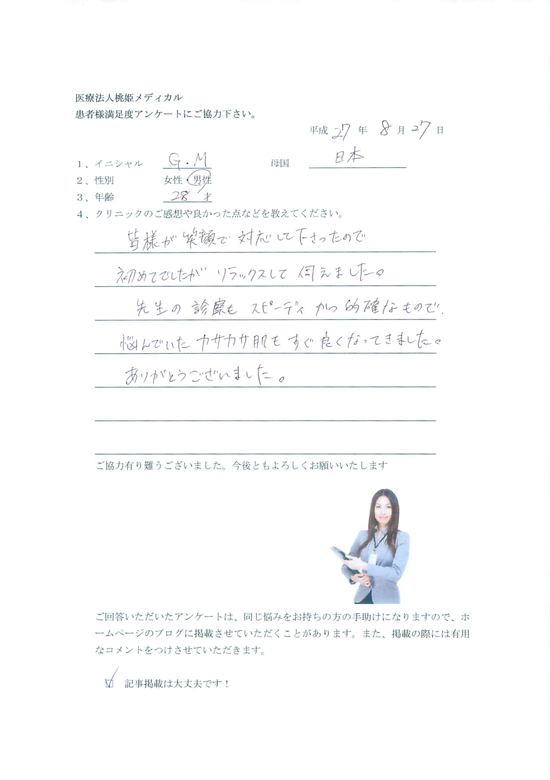 医療法人桃姫メディカル
患者様満足度アンケートにご協力下さい。
平成 27 年 8 月 27 日
1、イニシャル G.M 母国 日本
2、性別 女性・男性
3、年齢 28 才
4、クリニックのご感想や良かった点などを教えてください。
皆様が笑顔で対応して下さったので
初めてでしたがリラックスして伺えました。
先生の診察もスピーディかつ的確なもので、
悩んでいたカサカサ肌もすぐ良くなってきました。
ありがとうございました。
ご協力有り難うございました。今後ともよろしくお願いいたします
ご回答いただいたアンケートは、同じ悩みをお持ちの方の手助けになりますので、ホ
ームページのブログに掲載させていただくことがあります。また、掲載の際には有用
なコメントをつけさせていただきます。
☑ 記事掲載は大丈夫です！